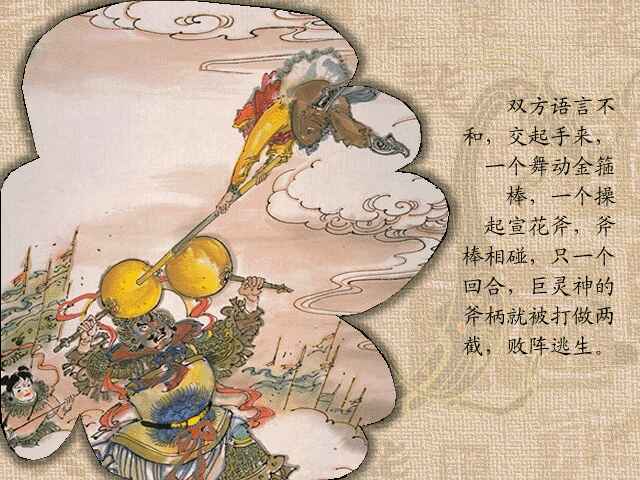 双方语言不
和，交起手来，
一个舞动金箍
棒，一个操
起宣花斧，斧
棒相碰，只一个
回合，巨灵神的
斧柄就被打做两
截，败阵逃生。